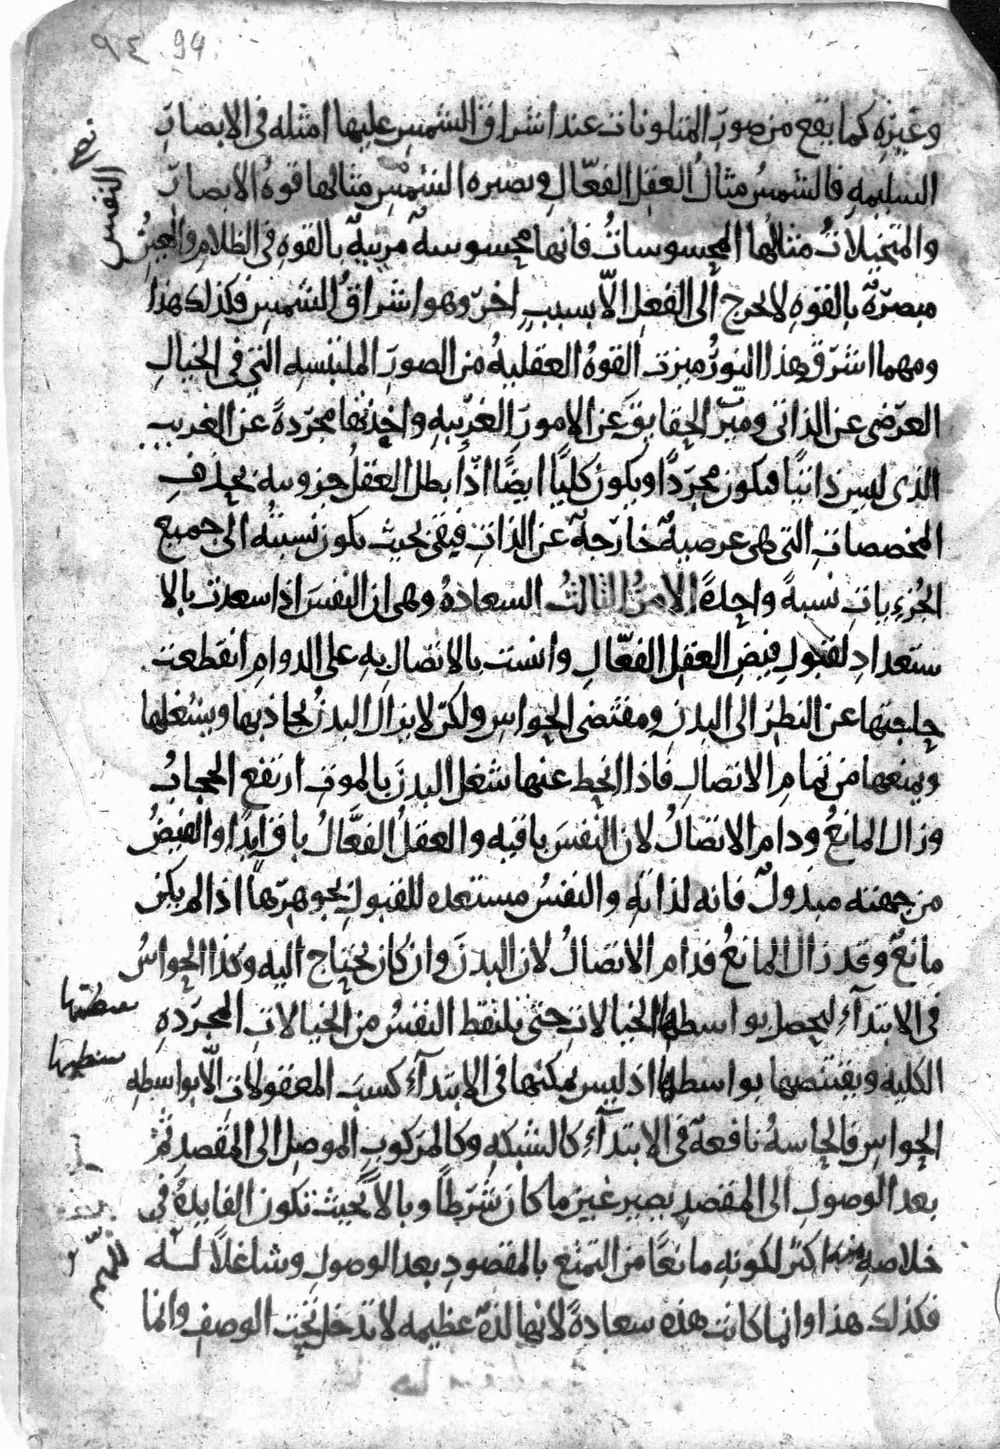 ٩٤ 94
وغيره كما يقع من صور المتلونات عند اشراق الشمس عليها امثله فى الابصار
السليمه فالشمس مثال العقل الفعال وبصيره الشمس مثالها قوة الابصار
والمتخيلات مثالها المحسوسات فانها محسوسة مرييه بالقوه فى الظلام والعين
مبصرة بالقوه لا تخرج الى الفعل الا بسبب اخر وهو اشراق الشمس فكذلك هذا
ومهما اشرق هذا النور ميزت القوة العقلية من الصور الملتبسه التى فى الخيال
العرضى عن الذاتى وميز الحقايق عن الامور الغريبه واخذتها مجردة عن الغريب
الذى ليس ذاتيا فيكون مجردا ويكون كليا ايضا اذ ابطل العقل جزويته بحذف
المخصصات التى هى عرضية خارجة عن الذات فبقى بحيث يكون نسبته الى جميع
الجزءيات نسبة واحدة الامر الثالث السعادة وهى ان النفس اذا سعدت بالا
ستعداد لقبول فيض العقل الفعال وانست بالاتصال به على الدوام انقطعت
حاجتها عن النظر الى البدن ومقتضى الحواس ولكن لا يزال البدن يجاذبها ويشغلها
ويمنعها من تمام الاتصال فاذا انحط عنها شغل البدن بالموت ارتفع الحجاب
وزال المانع ودام الاتصال لان النفس باقيه والعقل الفعال باق ابدا والفيض
من جهته مبذول فانه لذاته والنفس مستعده للقبول بجوهرها اذا لم يكن
مانع وقد زال المانع فدام الاتصال لان البدن وان كان يحتاج اليه وكذا الحواس
فى الابتداء ليحصل بواسطتها الخيالات حتى يلتقط النفس من الخيالات المجرده
الكليه ويقتنصها بواسطتها اذ ليس يمكنها فى الابتداء كسب المعقولات الا بواسطه
الحواس فالحاسة نافعة فى الابتداء كالشبكه وكالمركوب الموصل الى المقصد ثم
بعد الوصول الى المقصد يصير غير ما كان شرطا وبالا بحيث تكون الفايدة فى
خلاصه منه اكثر لكونه مانعا من التمتع بالمقصود بعد الوصول وشاغلا له
فكذلك هذا وانما كانت هذه سعادة لانها لذة عظيمه لا تدخل تحت الوصف وانما
النفس